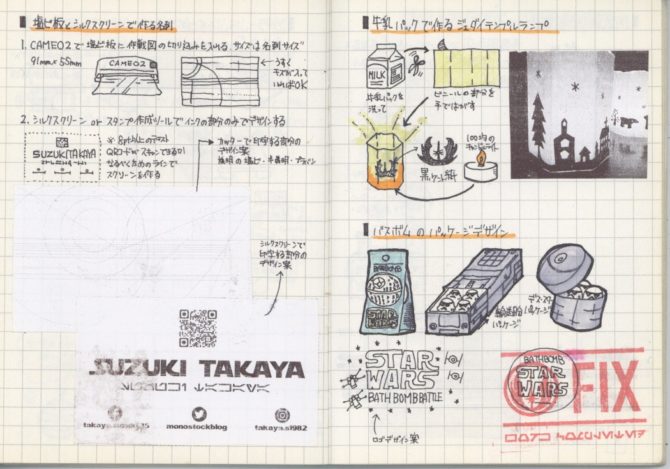 塩ビ板とシルクスクリーンで作る名刺
1. CAMEO2で塩ビ板に作戦図の切り込みを入れる サイズは名刺サイズ
91mm x 55mm
CAMEO2
うすく
キズが入って
いればOK
2. シルクスクリーン or スタンプ作成ツールでインクの部分のみでデザインする
SUZUKITAKAYA
※8pt以上のテキスト
QRコードがスキャンできる
なるべく太めのラインで
スクリーンを作る
カッターで印字する部分の
デザイン案
シルクスクリーンで
印字する部分の
デザイン案
SUZUKI TAKAYA
monostockblog
takaya.s1982
牛乳パックで作るジェダイテンプルランプ
MILK
牛乳パックを
洗って
ビニールの部分を
手ではがす
100均の
キャンドルライト
バスボムのパッケージデザイン
BATHBOMB
輸送船
パッケージ
デス・スター
パッケージ
STAR
WARS
BATH BOMB BATTLE
ロゴデザイン案
BATHBOMB
STAR
WARS
FIX